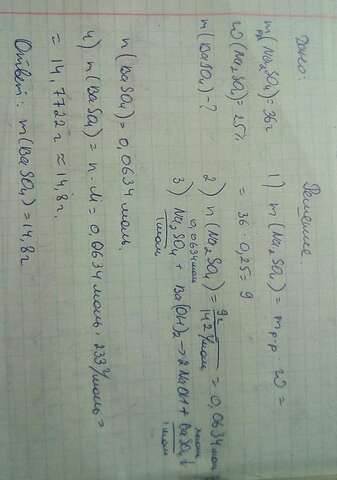 Дано:
m р(Na₂SO₄)=36г
ω(Na₂SO₄)=25%
m(BaSO₄)-?
Решение
1) m(Na₂SO₄)= mр-р · ω =
= 36 : 0,25 = 9
2) n(Na₂SO₄)= 9г / 142г/моль = 0,0634моль
0,0634моль
3) Na₂SO₄ + Ba(OH)₂ → 2NaOH + BaSO₄↓
1моль 1моль
n(BaSO₄)= 0,0634 моль.
4) m(BaSO₄)= n · M = 0,0634 моль · 233г/моль =
= 14,7722г ≈ 14,8г.
Ответ: m(BaSO₄)=14,8г